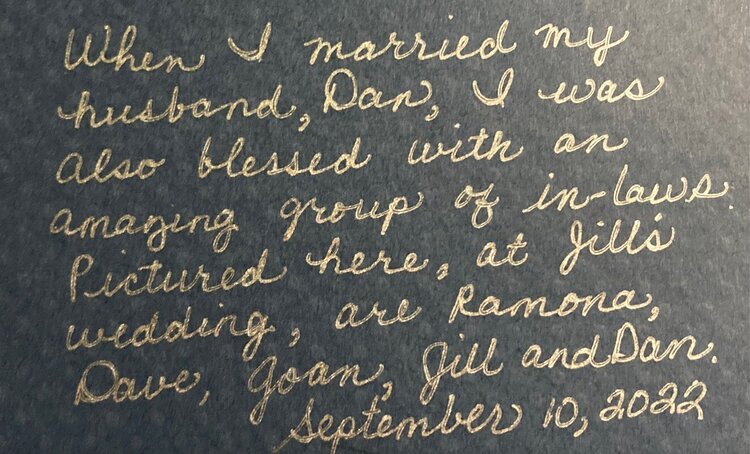 When I married my
husband, Dan, I was
also blessed with an
amazing group of in-laws.
Pictured here, at Jill's
wedding, are Ramona,
Dave, Joan, Jill and Dan.
September 10, 2022